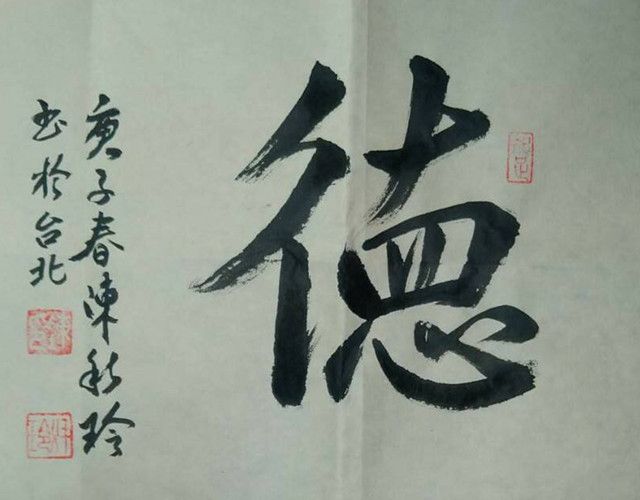 德
庚子春陳秋玲
书於台北